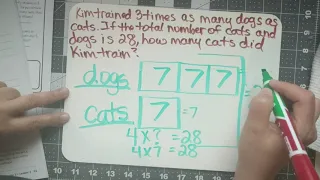 Kim trained 3 times as many dogs as
cats. If the total number of cats and
dogs is 28, how many cats did
Kim train?
dogs 7 7 7
cats 7 =7
4x? =28
4x? =28
10 11 12 13 14 15 16 17 18 19 20